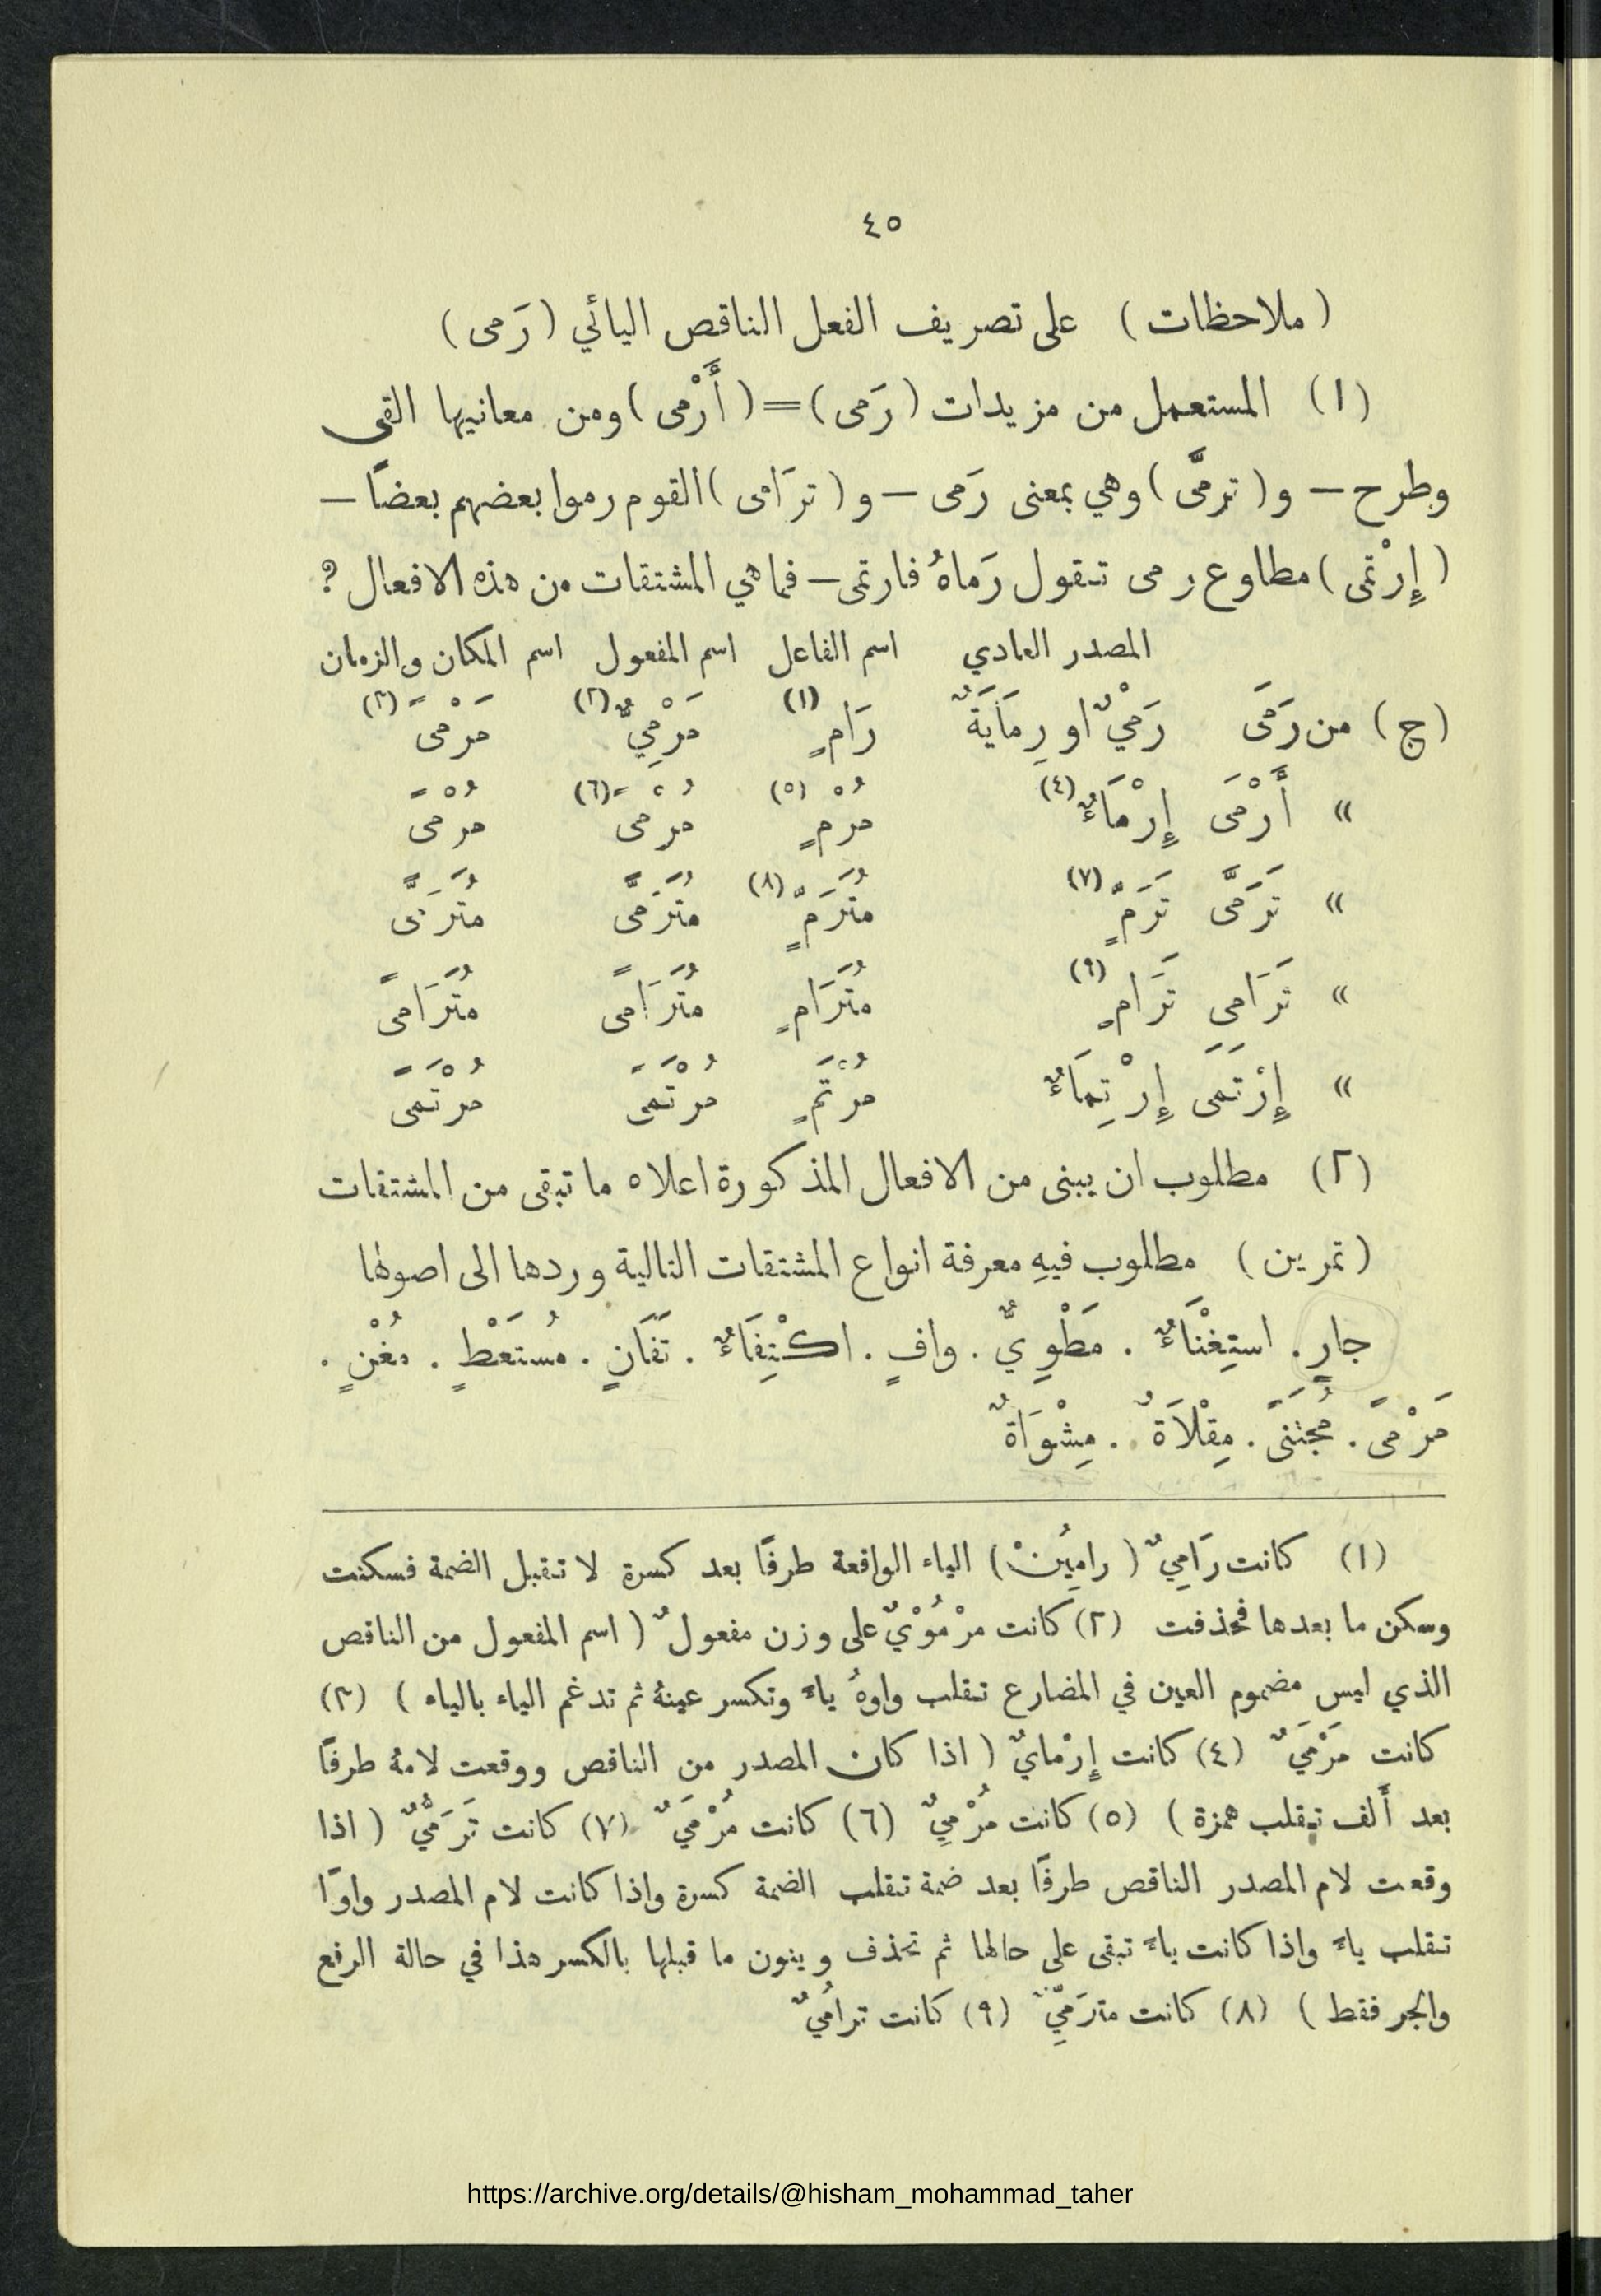 ٤٥
( ملاحظات ) على تصريف الفعل الناقص اليائي ( رَمى )
(١) المستعمل من مزيدات ( رَمى ) = ( أَرْمى ) ومن معانيها القى
وطرح – و ( ترمَّى ) وهي بمعنى رَمى – و ( ترَامى ) القوم رموا بعضهم بعضاً –
( إِرْتمى ) مطاوع رمى تقول رَماهُ فارتمى – فما هي المشتقات من هذه الافعال ؟
المصدر العادي اسم الفاعل اسم المفعول اسم المكان والزمان
(ج) من رَمَى رَمْيٌ او رِمَايَةٌ رَامٍ (١) مَرْمِيٌّ (٢) مَرْمىً (٣)
» أَرْمَى إِرْمَاءٌ (٤) مُرْمٍ (٥) مُرْمىً (٦) مُرْمىً
» تَرَمَّى تَرَمٍّ (٧) مُتَرَمٍّ (٨) مُتَرَمًّى مُتَرَمًّى
» تَرَامى تَرَامٍ (٩) مُتَرَامٍ مُتَرَامىً مُتَرَامىً
» إِرْتَمَى إِرْتِمَاءٌ مُرْتَمٍ مُرْتَمىً مُرْتَمىً
(٢) مطلوب ان يبنى من الافعال المذكورة اعلاه ما تبقى من المشتقات
( تمرين ) مطلوب فيهِ معرفة انواع المشتقات التالية وردها الى اصولها
جارٍ . استِغْنَاءٌ . مَطْوِيٌّ . وافٍ . اكْتِفَاءٌ . تَفَانٍ . مُستَعَطٍ . مُغْنٍ .
مَرْمىً . مُجْتَنىً . مِقْلَاةٌ . مِشْوَاةٌ
(١) كانت رَامِيٌ ( رامِيُنْ ) الياء الواقعة طرفًا بعد كسرة لا تقبل الضمة فسكنت
وسكن ما بعدها فحذفت (٢) كانت مرْمُوْيٌ على وزن مفعولٌ ( اسم المفعول من الناقص
الذي ليس مضموم العين في المضارع تقلب واوهُ ياءً وتكسر عينهُ ثم تدغم الياء بالياء ) (٣)
كانت مَرْمَيٌ (٤) كانت إِرْمايٌ ( اذا كان المصدر من الناقص ووقعت لامهُ طرفًا
بعد أَلف تقلب همزة ) (٥) كانت مُرْمِيٌ (٦) كانت مُرْمَيٌ (٧) كانت تَرَمُّيٌ ( اذا
وقعت لام المصدر الناقص طرفًا بعد ضمة تقلب الضمة كسرة واذا كانت لام المصدر واوًا
تقلب ياءً واذا كانت ياءً تبقى على حالها ثم تحذف وينون ما قبلها بالكسر هذا في حالة الرفع
والجر فقط ) (٨) كانت مترَمِّيٌ (٩) كانت ترامُيٌ
https://archive.org/details/@hisham_mohammad_taher